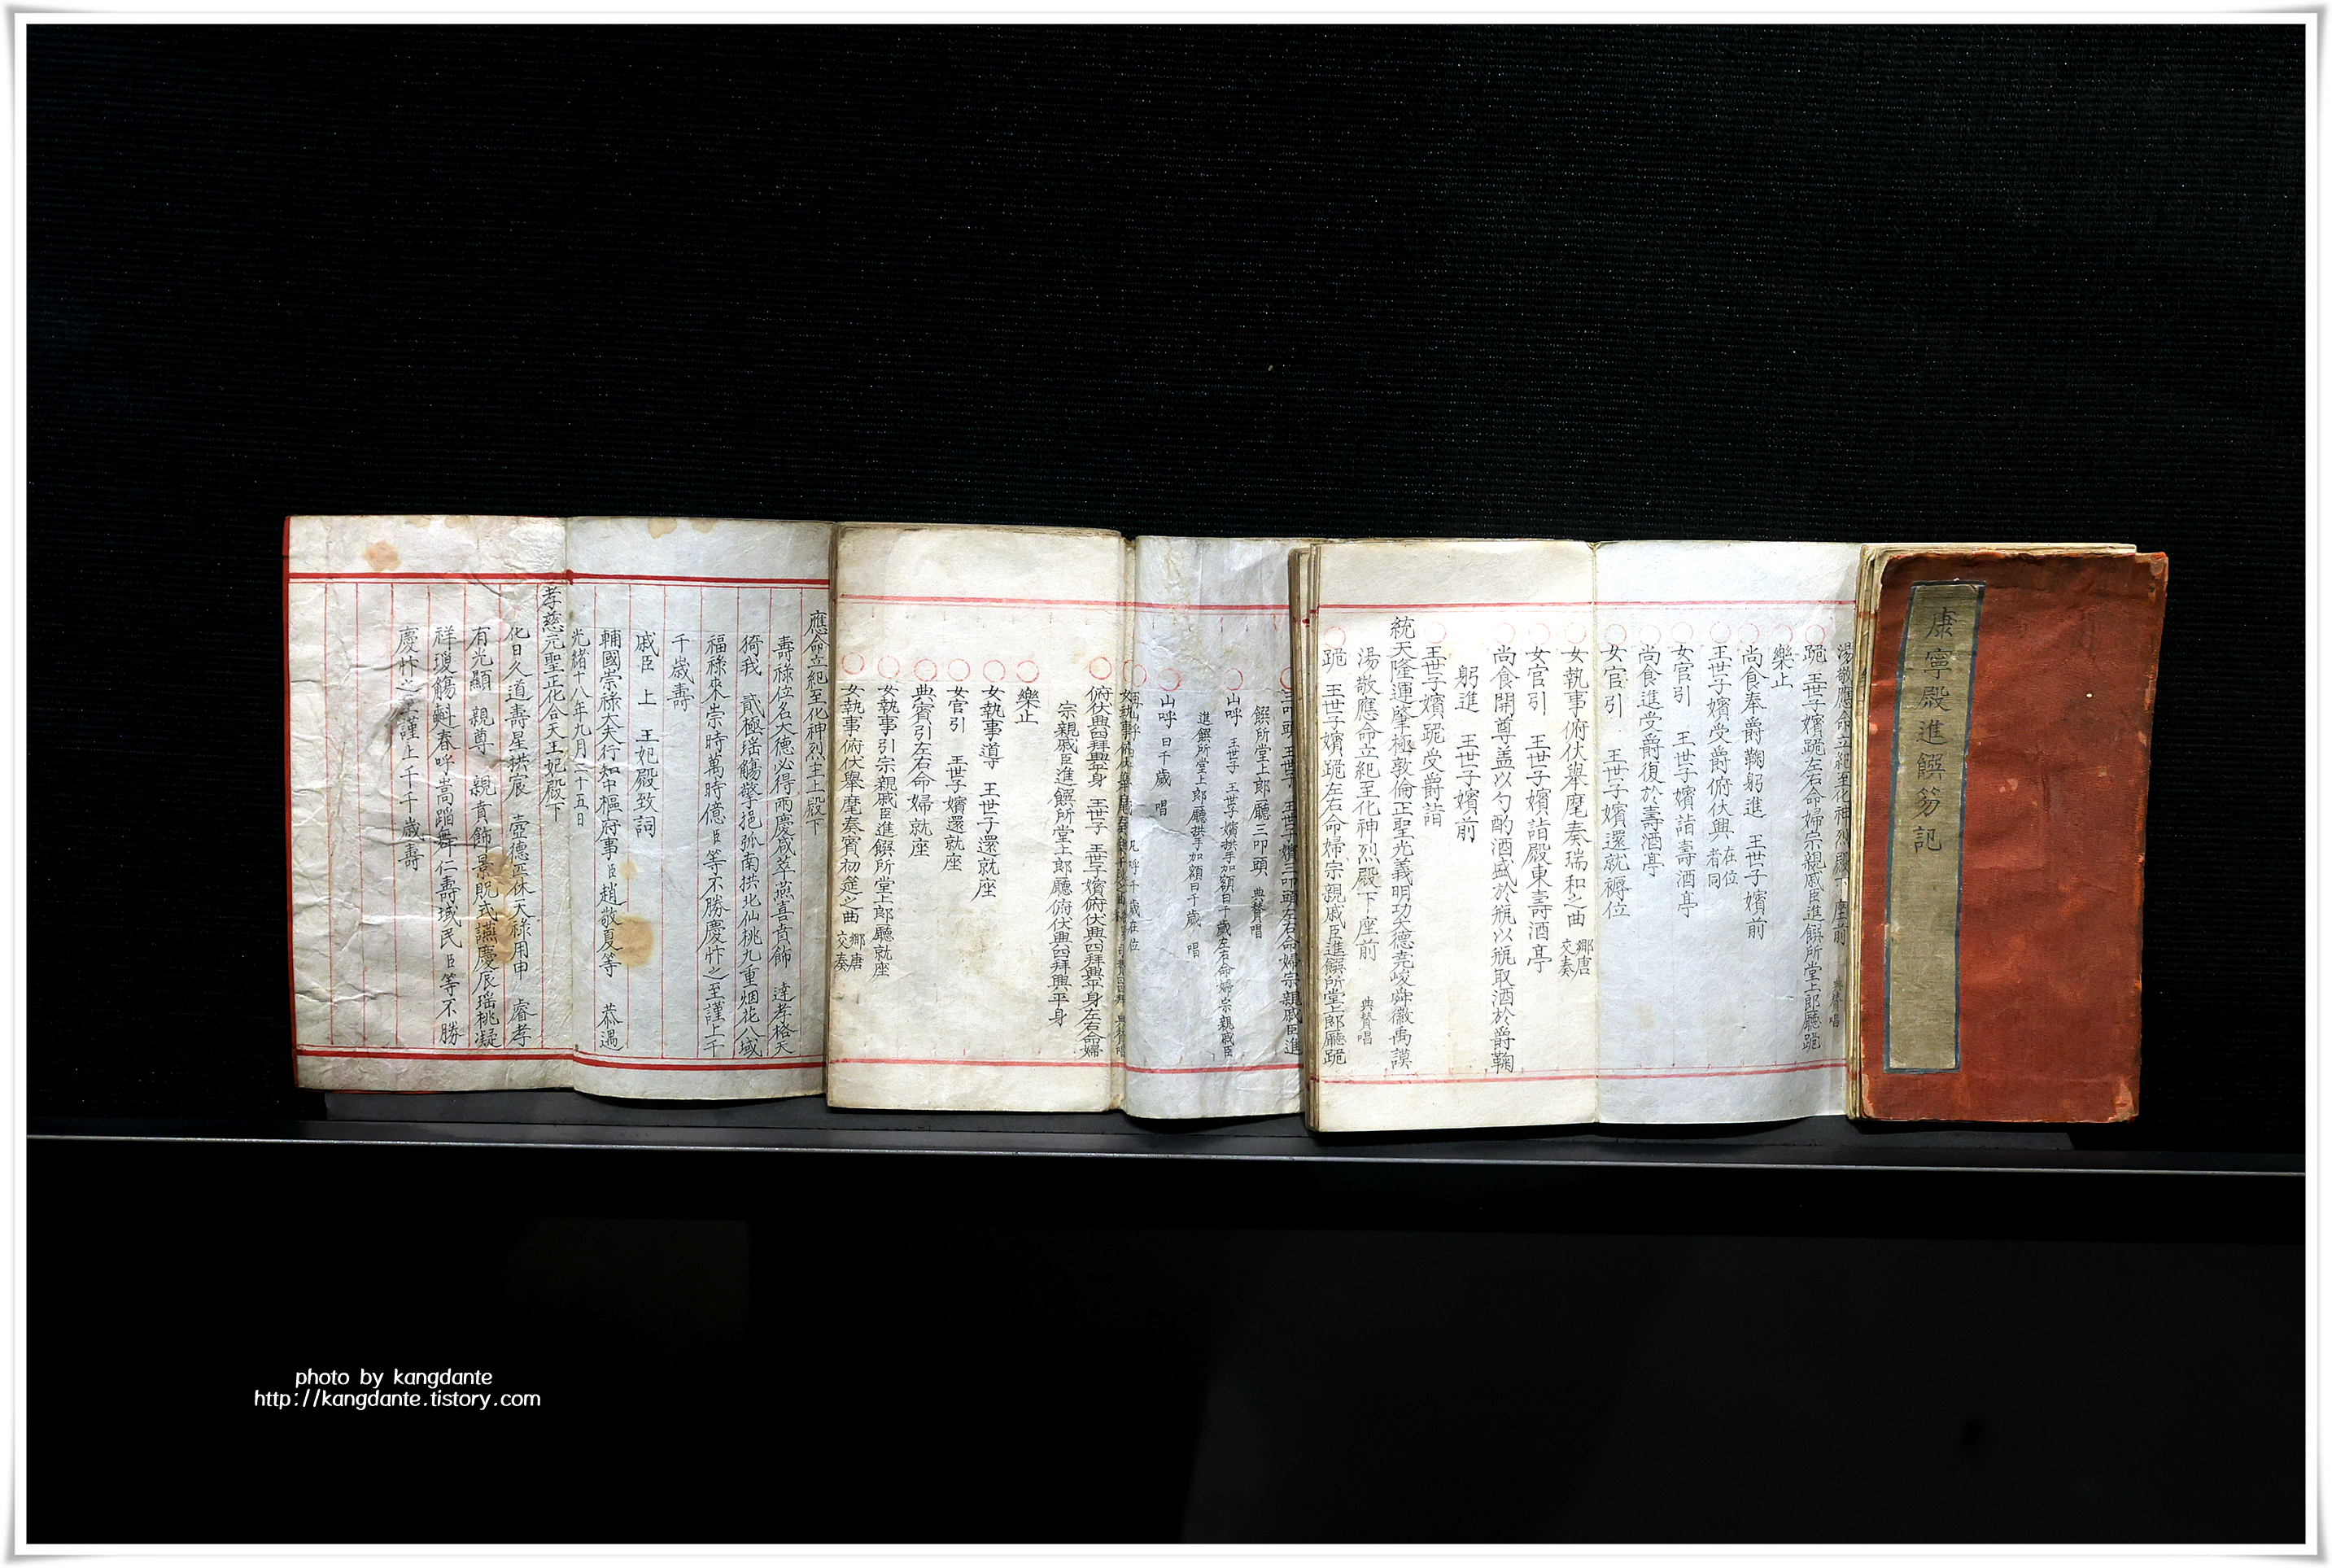 康寧殿進饌笏記
湯敬應命立紀至化神烈殿下座前 典贊唱
跪 王世子嬪跪左右命婦宗親戚臣進饌所堂上郎廳跪
樂止
尚食奉爵鞠躬進 王世子嬪前
王世子嬪受爵俯伏興 在位者同
女官引 王世子嬪詣壽酒亭
尚食進受爵復於壽酒亭
女官引 王世子嬪還就褥位
女執事俯伏舉麾奏瑞和之曲 鄕唐交奏
女官引 王世子嬪詣殿東壽酒亭
尚食開尊盖以勺酌酒盛於瓶以瓶取酒於爵鞠
躬進 王世子嬪前
王世子嬪跪受爵詣
統天隆運肇極敦倫正聖光義明功大德堯峻舜徽禹謨
湯敬應命立紀至化神烈殿下座前 典贊唱
跪 王世子嬪跪左右命婦宗親戚臣進饌所堂上郎廳跪
三叩頭 王世子 王世子嬪三叩頭左右命婦宗親戚臣進
饌所堂上郎廳三叩頭 典贊唱
山呼 王世子 王世子嬪拱手加額曰千歲左右命婦宗親戚臣
進饌所堂上郎廳拱手加額曰千歲 唱
山呼 曰千歲 唱
再山呼
俯伏興四拜興平身 王世子 王世子嬪俯伏興四拜興平身左右命婦
宗親戚臣進饌所堂上郎廳俯伏興四拜興平身
樂止
女執事導 王世子還就座
女官引 王世子嬪還就座
典賓引左右命婦就座
女執事引宗親戚臣進饌所堂上郎廳就座
女執事俯伏舉麾奏賓初筵之曲 鄕唐交奏
應命立紀至化神烈主上殿下
壽祿位名大德必得兩慶咸萃燕喜賁飾 達孝格天
猗我 貳極瑶觴擎挹弧南拱北仙桃九重烟花八域
福祿來崇時萬時億臣等不勝慶忭之至謹上千
千歲壽
戚臣 上 王妃殿致詞
輔國崇祿大夫行知中樞府事臣趙敬夏等 恭遇
光緖十八年九月二十五日
孝慈元聖正化合天王妃殿下
化日久道壽星拱宸 壼德匹休天祿用申 睿孝
有光顯 親尊 親賁飾景貺式讌慶辰瑶桃凝
祥瓊觴斟春呼嵩蹈舞仁壽域民臣等不勝
慶忭之至謹上千千歲壽
photo by kangdante
http://kangdante.tistory.com